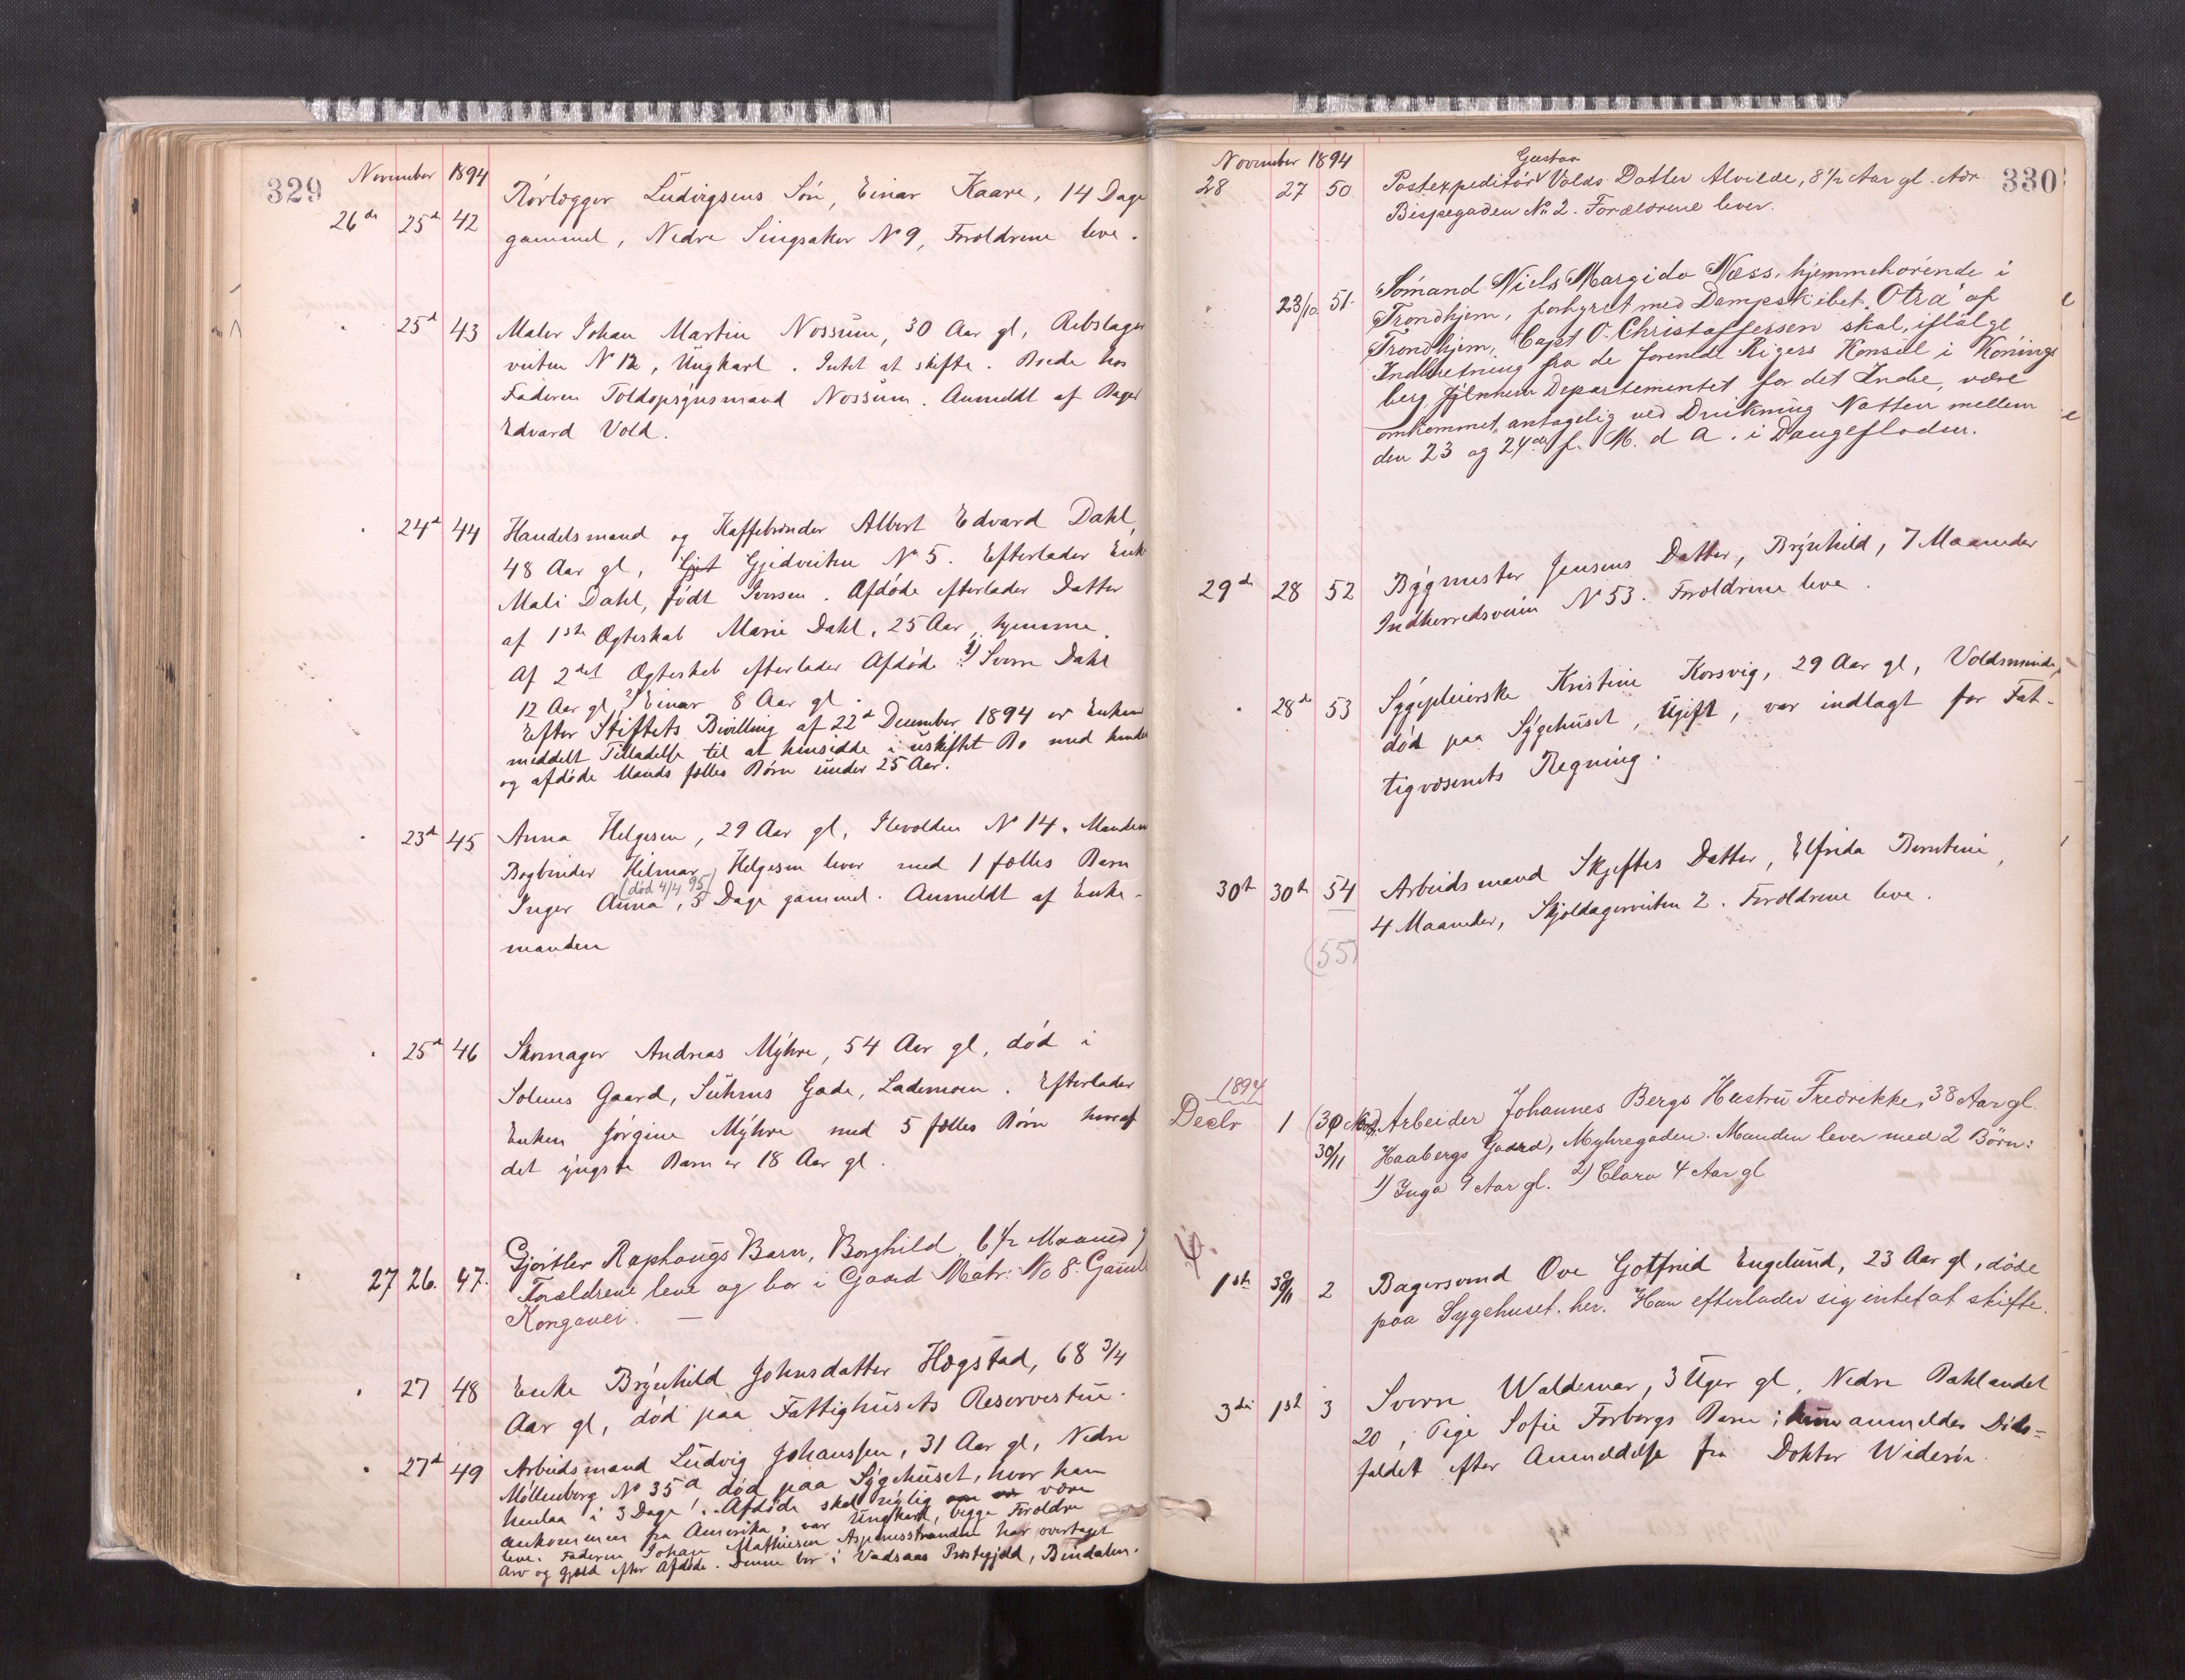 329
November 1894
26de 25d 42 Rørlægger Ludvigsens Søn, Einar Kaare, 14 Dage
gammel, Nedre Singsaker N 9, Forældrene leve.
25d 43 Maler Johan Martin Nossum, 30 Aar gl, Repslager
veiten N 12, Ungkarl. Intet at skifte. Boede hos
Faderen Toldopsynsmand Nossum. Anmeldt af Bager
Edvard Vold.
24d 44 Handelsmand og Kaffebrænder Albert Edvard Dahl,
48 Aar gl, Gjet Gjedveiten N 5. Efterlader Enke
Mali Dahl, født Iversen. Afdøde efterlader Datter
af 1ste Ægteskab Marie Dahl, 25 Aar, hjemme.
Af 2det Ægteskab efterlader Afdøde 1) Sverre Dahl
12 Aar gl, 2) Einar 8 Aar gl.
Efter Stiftets Bevilling af 22d December 1894 er Enken
meddelt Tilladelse til at hensidde i uskiftet Bo med hendes
og afdøde Mands fælles Børn under 25 Aar.
23d 45 Anna Helgesen, 29 Aar gl, Ilevolden N 14. Manden
Bogbinder Hilmar Helgesen lever med 1 fælles Barn
(død 4/4 95)
Inger Anna, 5 Dage gammel. Anmeldt af Enke-
manden
25d 46 Skomager Andreas Myhre, 54 Aar gl, død i
Solems Gaard, Suhms Gade, Lademoen. Efterlader
Enken Jørgine Myhre med 5 fælles Børn hvoraf
det yngste Barn er 18 Aar gl.
27 26. 47. Gjørtler Raphaugs Barn, Borghild 6 1/2 Maaned
Forældrene leve og bor i Gaard Matr: No 8. Gamle
Kongevei. —
27 48 Enke Brynhild Johnsdatter Hogstad, 68 3/4
Aar gl, død paa Fattighusets Reservestue.
27d 49 Arbeidsmand Ludvig Johanssen, 31 Aar gl, Nedre
Møllenberg N 35a død paa Sygehuset, hvor han
henlaa i 3 Dage. Afdøde skal nylig være
ankommen fra Amerika, var Ungkarl, begge Forældre
leve. Faderen Johan Mathiesen Aspenesstranden har overtaget
Arv og Gjæld efter Afdøde. Denne bor i Vadsaas Præstegjæld, Bindalen.
330
November 1894
Gustav
28 27 50 Postexpeditør Volds Datter Alvilde, 8 1/2 Aar gl. Adr
Bispegaden No 2. Forældrene lever.
23/10 51. Sømand Niels Margido Næss, hjemmehørende i
Trondhjem, forhyret med Dampskibet "Otra" af
Trondhjem, Capt O. Christoffersen skal, ifølge
Indberetning fra de forenede Rigers Konsul i Kønings
berg til Departementet for det Indre, være
omkommet, antagelig ved Drukning Natten mellem
den 23 og 24de f. M. d A. i Dangefloden.
29de 28 52 Bygmester Jensens Datter, Brynhild, 7 Maaneder
Indherredsveien N 53. Forældrene leve.
28de 53 Sygepleierske Kristine Korsvig, 29 Aar gl, Voldsminde,
død paa Sygehuset, Ugift, var indlagt for Fat-
tigvæsenets Regning.
30te 30te 54 Arbeidsmand Skjeftes Datter, Elfrida Berntine,
4 Maaneder, Skjoldagerveiten 2. Forældrene leve.
(55)
1894
Decbr 1 30/11 Arbeider Johannes Bergs Hustru Fredrikke, 38 Aar gl.
Haabergs Gaard, Myhregaden. Manden lever med 2 Børn:
1) Inga 9 Aar gl. 2) Clara 4 Aar gl
1ste 30/11 2 Bagersvend Ove Gotfried Engelund, 23 Aar gl, døde
paa Sygehuset. her. Han efterlader sig intet at skifte.
3die 1ste 3 Sverre Waldemar, 3 Uger gl, Nedre Baklandet
20, Pige Sofie Forbergs Barn; hun anmelder Døds-
faldet efter Anmeldelse fra Doktor Widerøe.